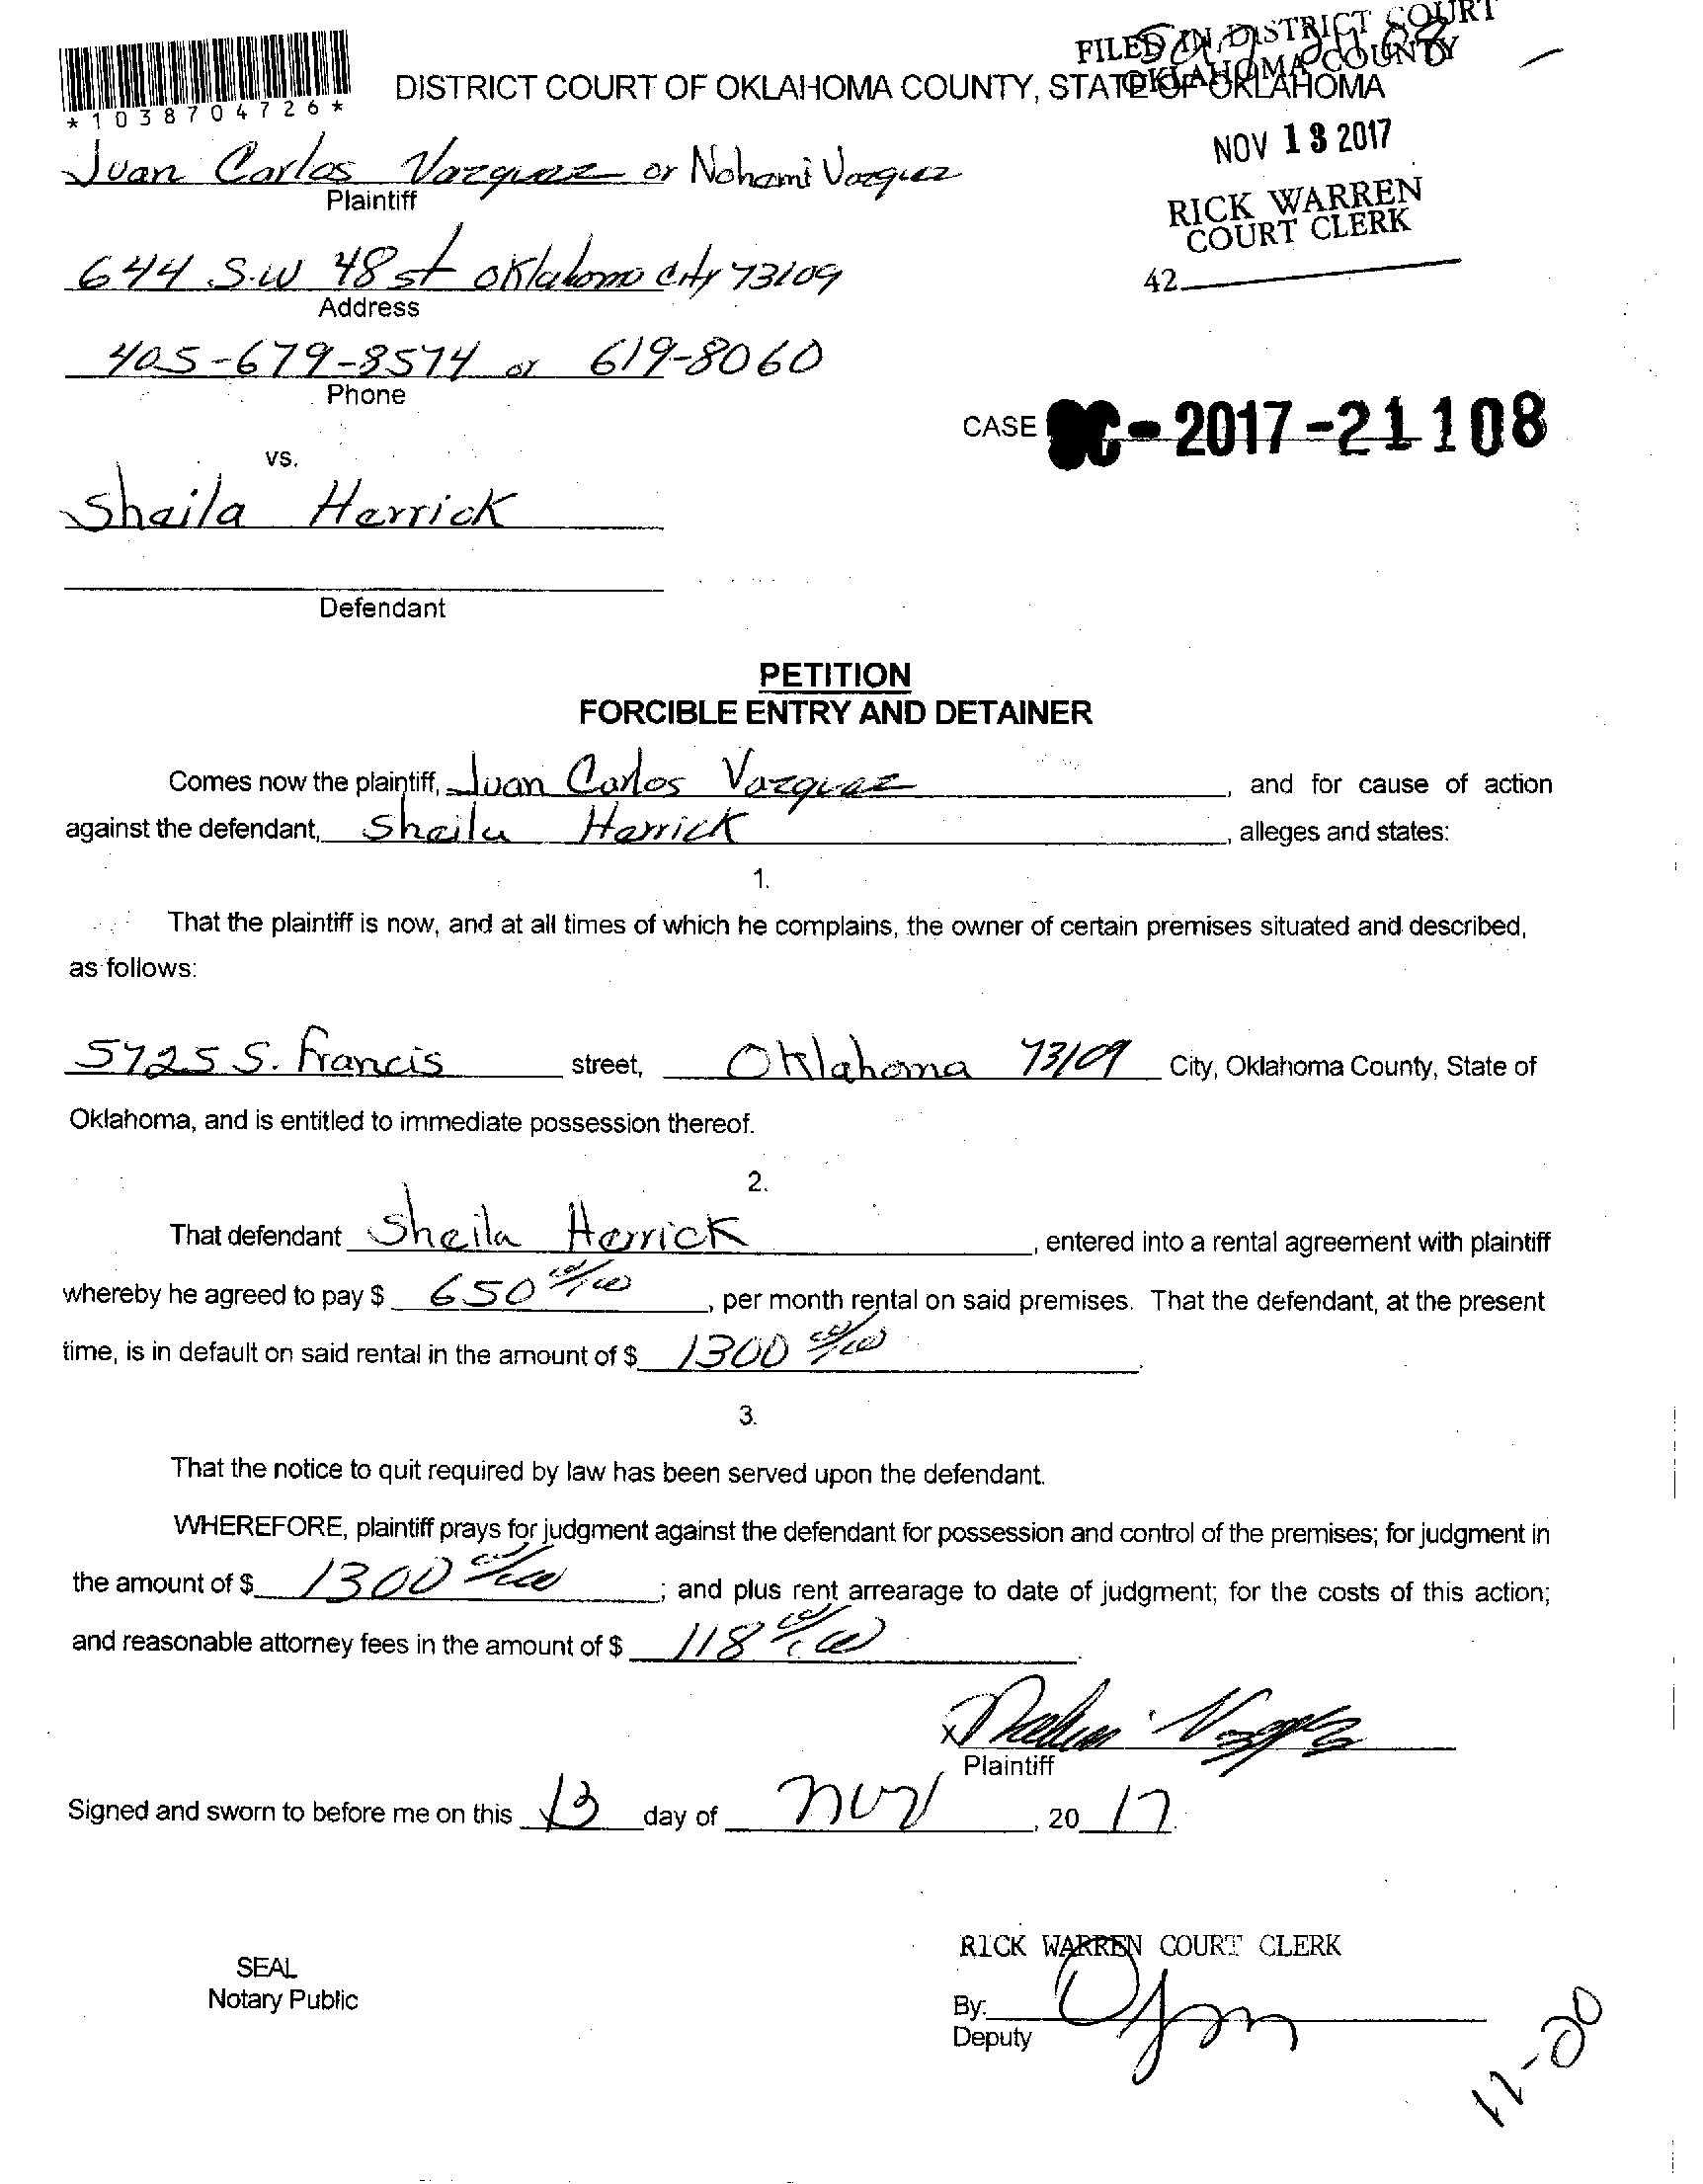 FILED IN DISTRICT COURT
OKLAHOMA COUNTY
DISTRICT COURT OF OKLAHOMA COUNTY, STATE OF OKLAHOMA
*1038704726*
NOV 13 2017
Juan Carlos Vazquez or Nohemi Vazquez
Plaintiff
RICK WARREN
COURT CLERK
644 S.W 48 st oklahoma city 73109
42
Address
405-679-8574 or 619-8060
Phone
CASE SC-2017-21108
vs.
Shaila Herrick
Defendant
PETITION
FORCIBLE ENTRY AND DETAINER
Comes now the plaintiff, Juan Carlos Vazquez, and for cause of action
against the defendant, Sheila Herrick, alleges and states:
1.
That the plaintiff is now, and at all times of which he complains, the owner of certain premises situated and described,
as follows:
5725 S. Francis street, Oklahoma 73109 City, Oklahoma County, State of
Oklahoma, and is entitled to immediate possession thereof.
2.
That defendant Sheila Herrick, entered into a rental agreement with plaintiff
whereby he agreed to pay $ 650 00/100, per month rental on said premises. That the defendant, at the present
time, is in default on said rental in the amount of $ 1300 00/100.
3.
That the notice to quit required by law has been served upon the defendant.
WHEREFORE, plaintiff prays for judgment against the defendant for possession and control of the premises; for judgment in
the amount of $ 1300 00/100; and plus rent arrearage to date of judgment; for the costs of this action;
and reasonable attorney fees in the amount of $ 118 00/100.
X
Plaintiff
Signed and sworn to before me on this 13 day of nov, 20 17.
RICK WARREN COURT CLERK
SEAL
Notary Public
By:
Deputy
11-20